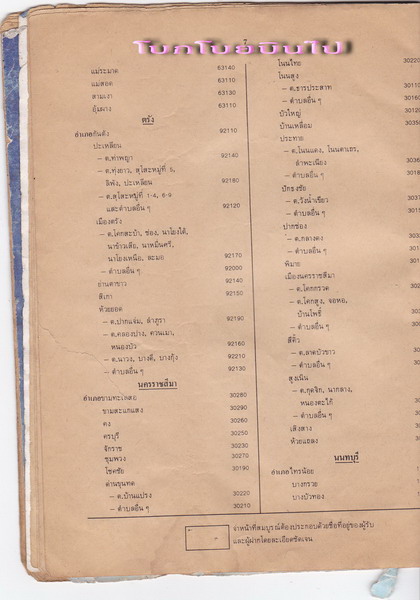 โบกโบยบินไป
7
แม่ระมาด 63140
แม่สอด 63110
สามเงา 63130
อุ้มผาง 63110
ตรัง
อำเภอกันตัง 92110
ปะเหลียน
- ต.ท่าพญา 92140
- ต.ทุ่งยาว, สุโสะหมู่ที่ 5,
ลิพัง, ปะเหลียน 92180
- ต.สุโสะหมู่ที่ 1-4, 6-9
และตำบลอื่น ๆ 92120
เมืองตรัง
- ต.โคกสะบ้า, ช่อง, นาโยงใต้,
นาข้าวเสีย, นาหมื่นศรี,
นาโยงเหนือ, ละมอ 92170
- ตำบลอื่น ๆ 92000
ย่านตาขาว 92140
สิเกา 92150
ห้วยยอด
- ต.ปากแจ่ม, ลำภูรา 92190
- ต.คลองปาง, ควนเมา,
หนองบัว 92160
- ต.นาวง, บางดี, บางกุ้ง 92210
- ตำบลอื่น ๆ 92130
นครราชสีมา
อำเภอขามทะเลสอ 30280
ขามสะแกแสง 30290
คง 30260
ครบุรี 30250
จักราช 30230
ชุมพวง 30270
โชคชัย 30190
ด่านขุนทด
- ต.บ้านแปรง 30220
- ตำบลอื่น ๆ 30210
โนนไทย 30220
โนนสูง
- ต.ธารประสาท
- ตำบลอื่น ๆ
บัวใหญ่
บ้านเหลื่อม
ประทาย
- ต.โนนแดง, โนนตาเถร,
สำพะเนียง
- ตำบลอื่น ๆ
ปักธงชัย
- ต.วังน้ำเขียว
- ตำบลอื่น ๆ
ปากช่อง
- ต.กลางดง
- ตำบลอื่น ๆ
พิมาย
เมืองนครราชสีมา
- ต.โคกกรวด
- ต.โคกสูง, จอหอ,
บ้านโพธิ์
- ตำบลอื่น ๆ
สีคิ้ว
- ต.ลาดบัวขาว
- ตำบลอื่น ๆ
สูงเนิน
- ต.กุดจิก, นากลาง,
หนองตะไก้
- ตำบลอื่น ๆ
เสิงสาง
ห้วยแถลง
นนทบุรี
อำเภอไทรน้อย
บางกรวย
บางบัวทอง
จ่าหน้าที่สมบูรณ์ต้องประกอบด้วยชื่อที่อยู่ของผู้รับ
และผู้ฝากโดยละเอียดชัดเจน